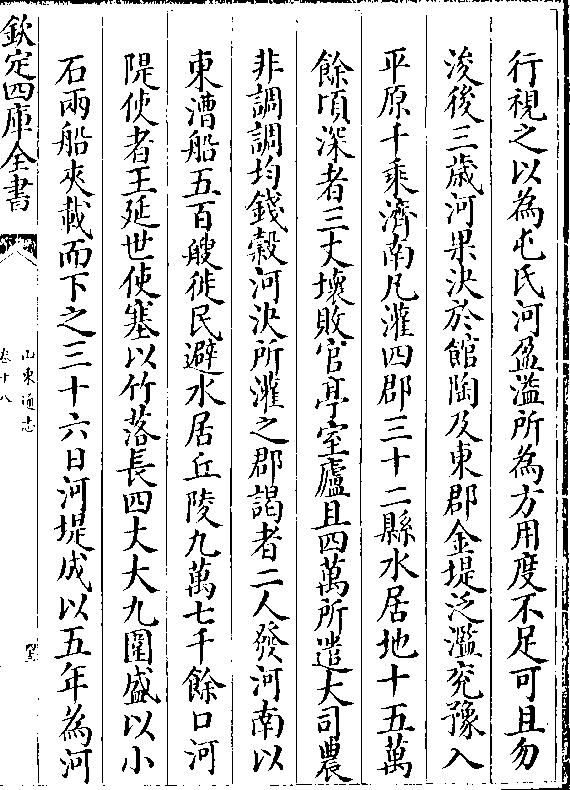 行視之以為屯氏河盈溢所為方用度不足可且勿
浚後三歲河果決於館陶及東郡金堤泛濫兖豫入
平原千乘濟南凡灌四郡三十二縣水居地十五萬
餘頃深者三丈壞敗官亭室廬且四萬所遣大司農
非調調均錢穀河決所灌之郡謁者二人發河南以
東漕船五百艘徙民避水居丘陵九萬七千餘口河
隄使者王延世使塞以竹落長四丈大九圍盛以小
石兩船夾載而下之三十六日河堤成以五年為河
欽定四庫全書
山東通志
卷十八